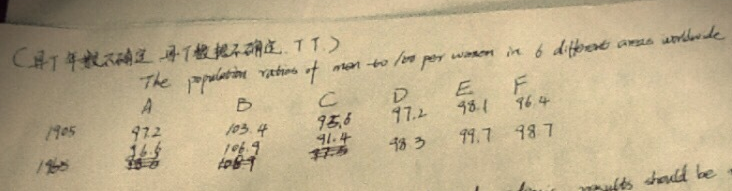 (月T年数不确定,月T数据不确定.TT.)
The population ratios of men to 100 per women in 6 different areas worldwide
A B C D E F
1905 97.2 103.4 95.6 97.2 98.1 96.4
96.6 106.9 91.4 98.3 99.7 98.7
results should be